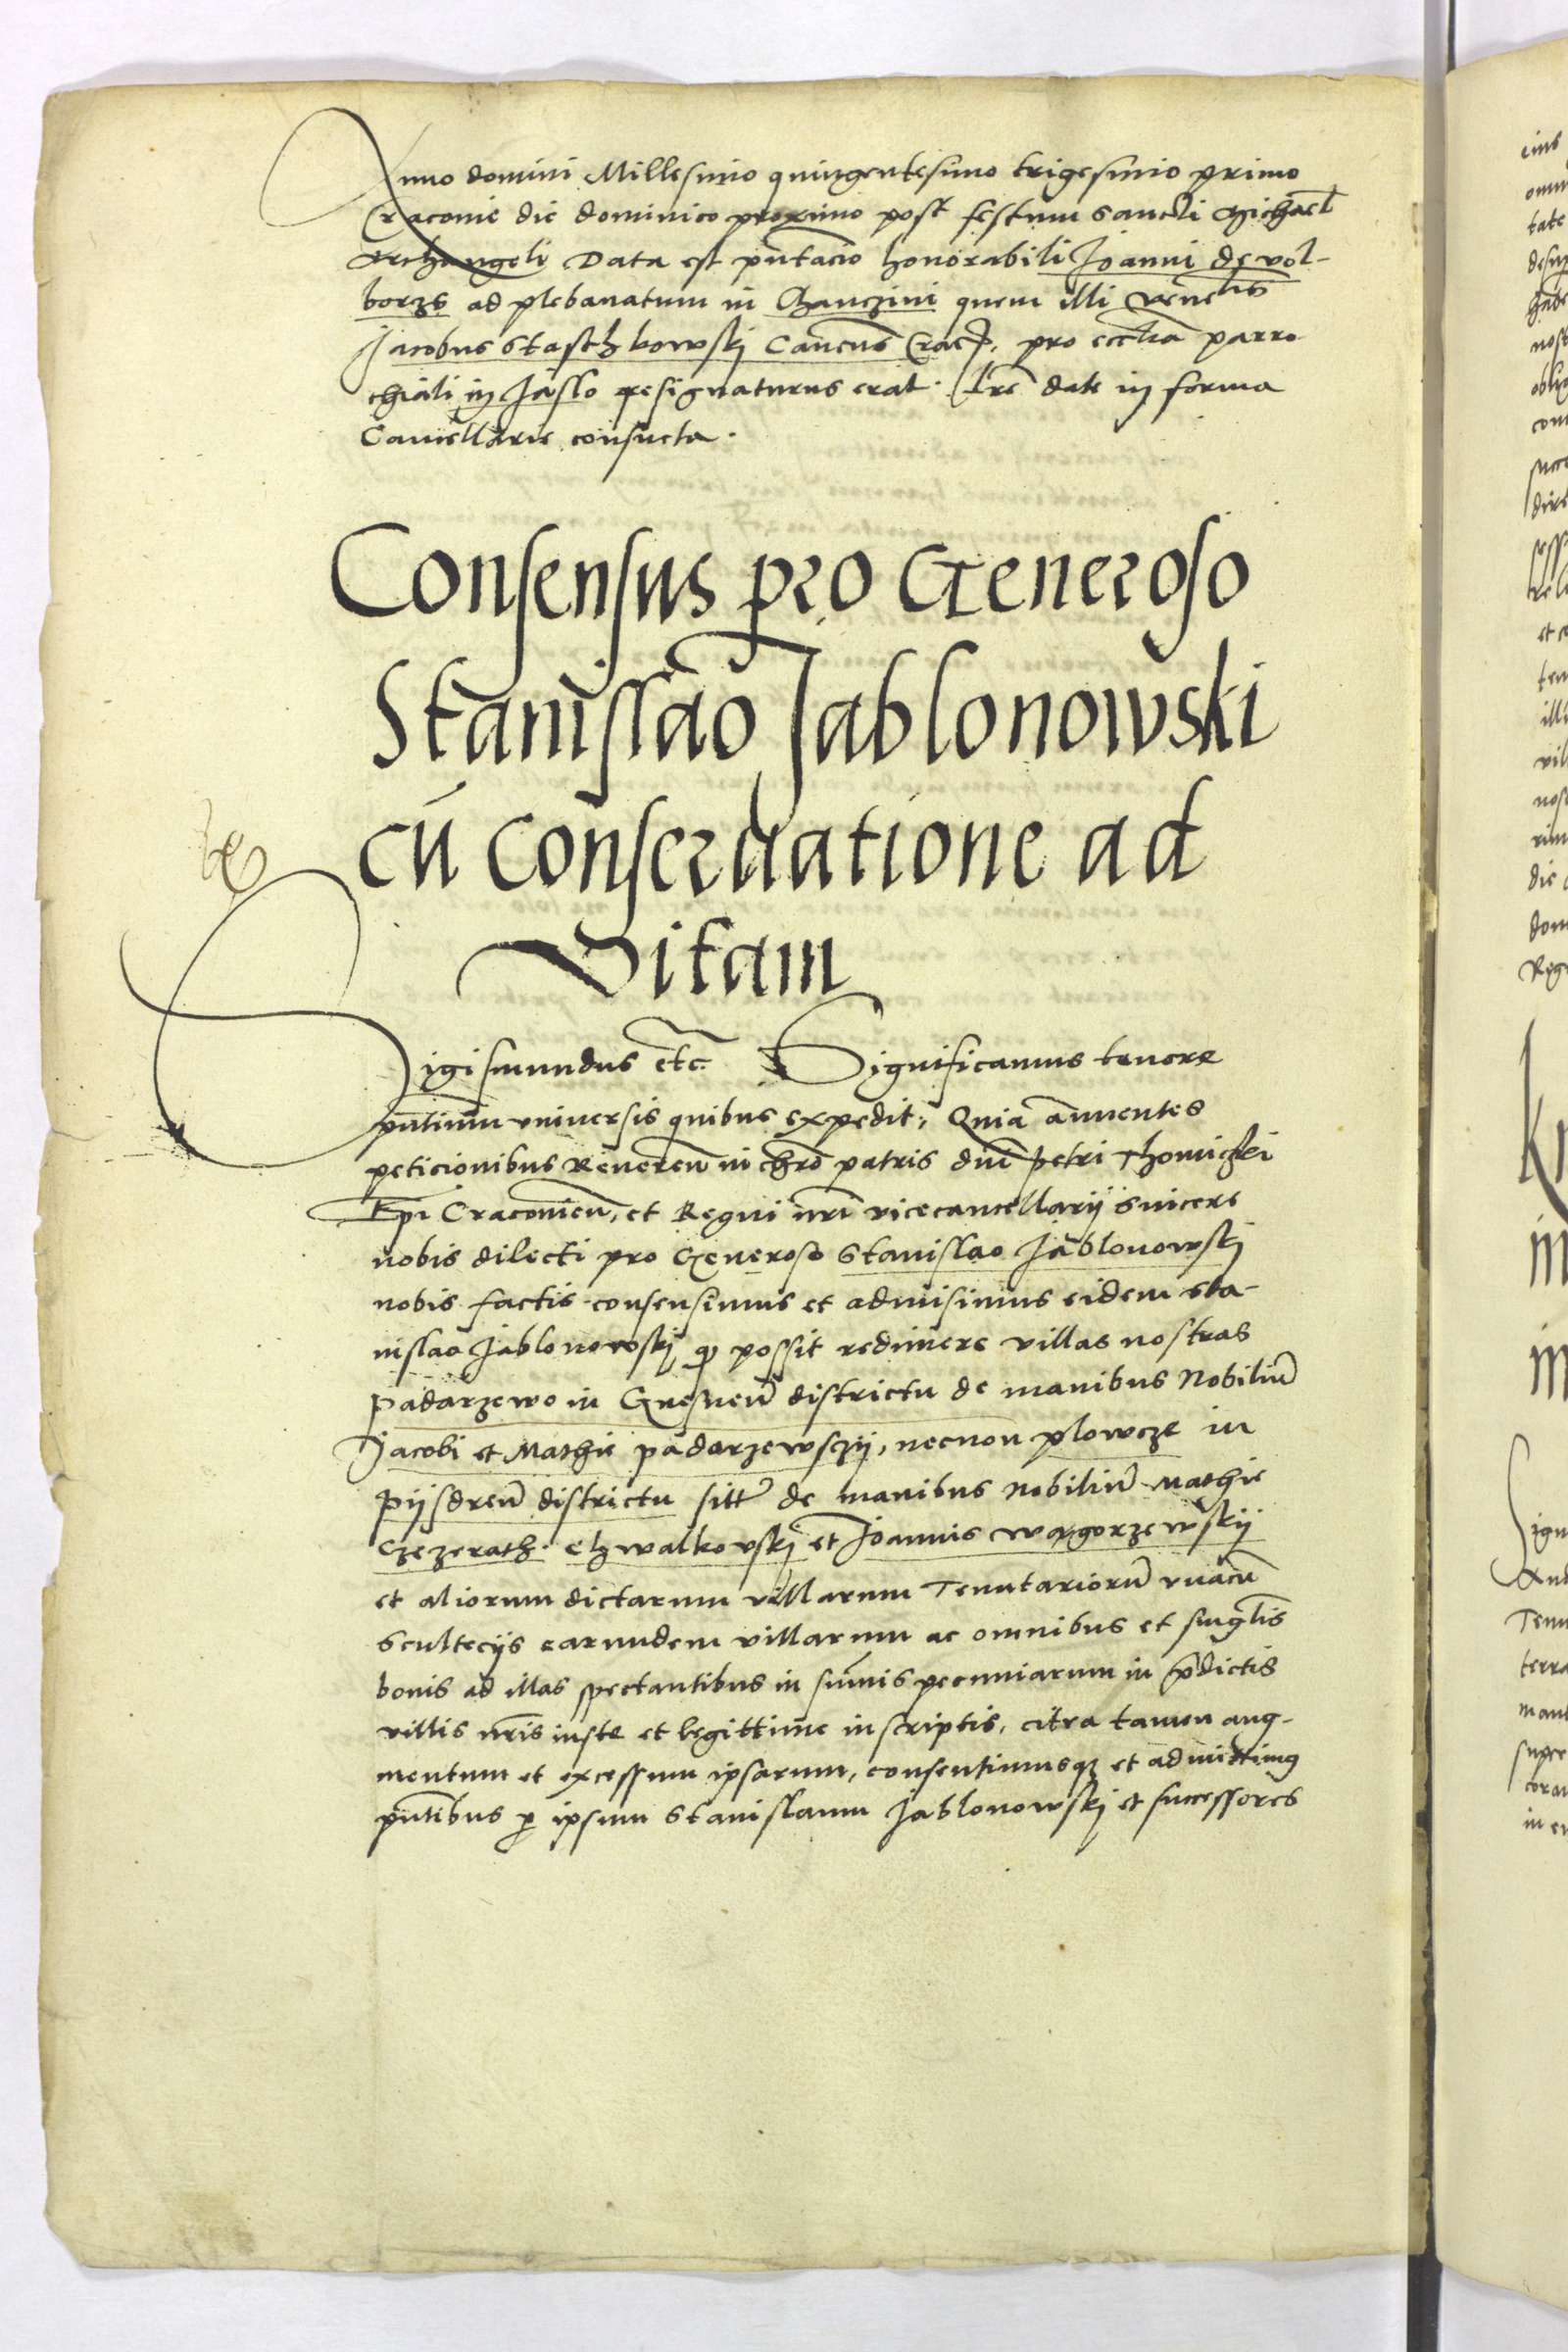 Anno domini Millesimo quingentesimo trigesimo primo
Cracovie die dominico proximo post festum sancti Michael
Archangeli Data est pñtacio honorabili Joanni de vol-
borzs ad plebanatum in Chanczini quem illi venelis
Jacobus Staschkowski Cañcus Crac, pro eccl̃ia parro
chiali in Jaslo resignaturus erat. Lr̃e date in forma
Cancellarie consueta.
Consensus pro Generoso
Stanislao Jablonowski
cũ conseruatione ad
Vitam
Sigismundus etc̃ Significamus tenore
pñtium vniuersis quibus expedit, Quia annuentes
peticionibus Reueren̄ in chro patris dñi Petri Thomiczki
Epi Cracouien̄, et Regni nr̃i vicecancellarij sincere
nobis dilecti pro Generoso Stanislao Jablonowskj
nobis factis consensimus et admisimus eidem sta-
nislao Jablonowskj ꝙ possit redimere villas nostras
Padarzewo in Gnesnen̄ districtu de manibus Nobiliū
Jacobi et Mathie padarzewsczij, necnon plowcze in
Pijsdren̄ districtu sitt̃ de manibus nobiliū Mathie
Czezerath. Chwalkovskj et Joannis Wagorzewskij
et aliorum dictarum villarum Tenutariorū vnacū
scultecijs earundem villarum ac omnibus et singlis̃
bonis ad illas spectantibus in sum̃is pecuniarum in p̃dictis
villis nr̃is iuste et legittime inscriptis, citra tamen aug-
mentum et excessum ipsarum, consentimusqꝫ et admittimus
pñtibus ꝑ ipsum Stanislaum Jablonowskj et successores